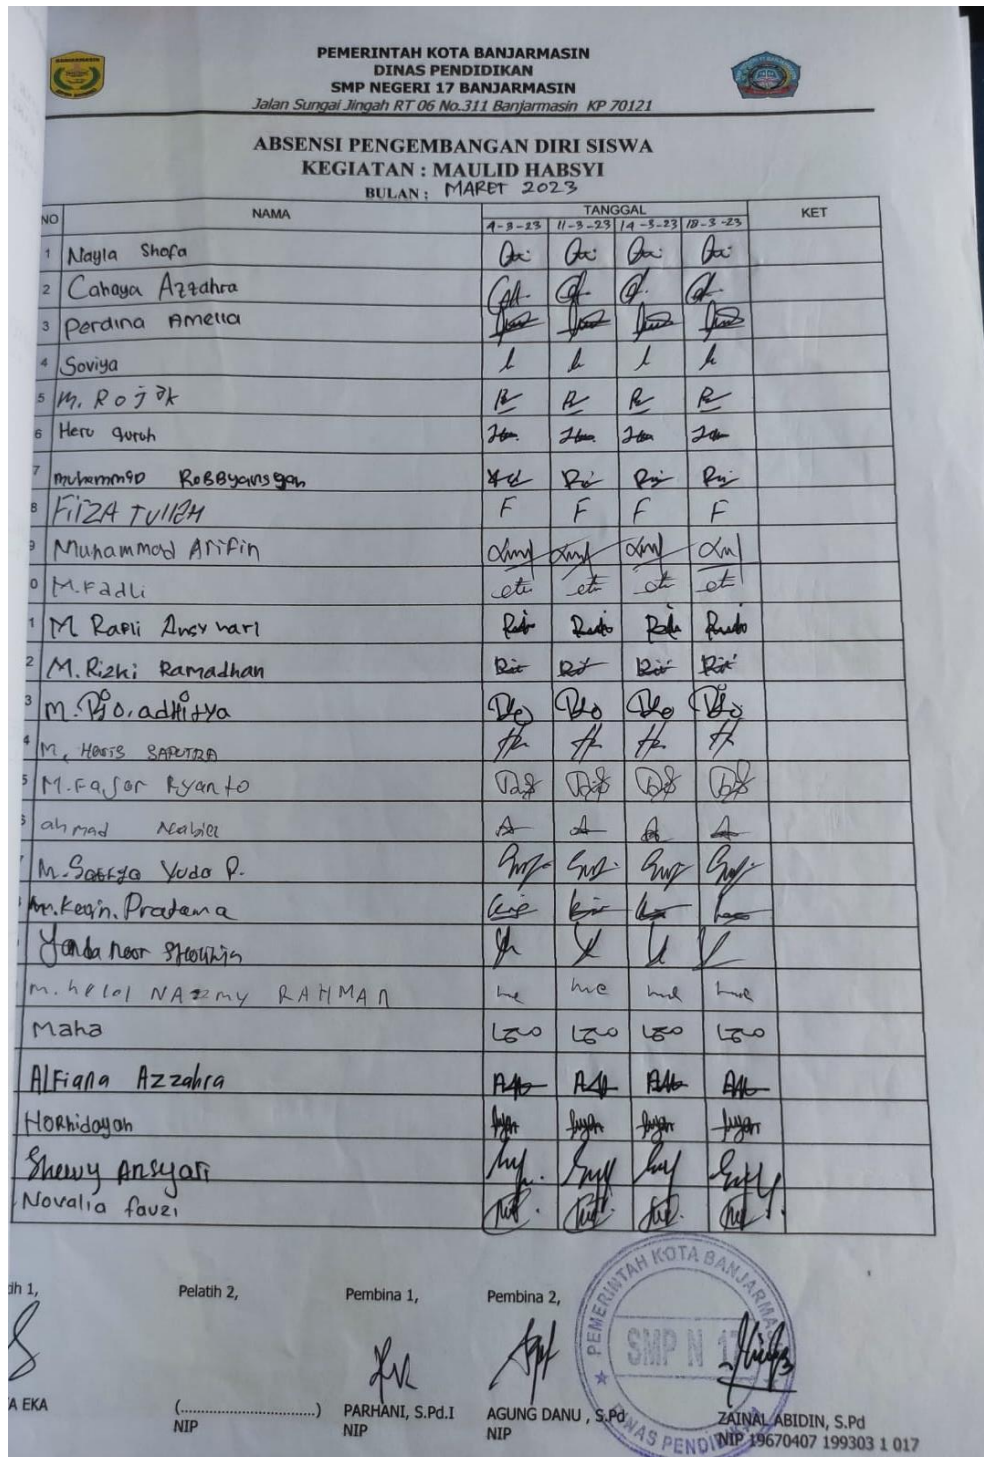 PEMERINTAH KOTA BANJARMASIN
DINAS PENDIDIKAN
SMP NEGERI 17 BANJARMASIN
Jalan Sungai Jingah RT 06 No.311 Banjarmasin KP 70121
ABSENSI PENGEMBANGAN DIRI SISWA
KEGIATAN : MAULID HABSYI
BULAN : MARET 2023
NO NAMA TANGGAL KET
4-3-23 11-3-23 14-3-23 18-3-23
1 Nayla Shofa
2 Cahaya Azzahra
3 Perdina Amelia
4 Soviya
5 M. Rojak
6 Heru guruh
7 muhammad RoBByansyah
8 FiiZA
9 Muhammad Arifin
0 M.Fadli
1 M Rafli Ansyhari
2 M. Rizki Ramadhan
3 M. Rio. adhitya
4 M. Haris SAPUTRA
5 M. Fajar Ryanto
6 ahmad Nabiel
M. Satrya Yudo P.
M. Kevin. Pratama
Yanda Noor
M. helal NAZMY RAHMAN
Maha
AlFiana Azzahra
Horhidayah
Shewy Ansyari
Novalia fauzi
ih 1, Pelatih 2, Pembina 1, Pembina 2,
PEMERINTAH KOTA BANJARMA
SMP N 17
DINAS PENDIDIKAN
A EKA (................................) PARHANI, S.Pd.I AGUNG DANU , S.Pd ZAINAL ABIDIN, S.Pd
NIP NIP NIP NIP 19670407 199303 1 017